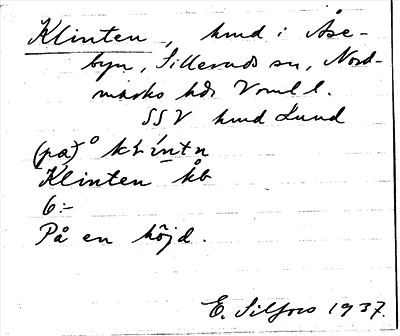 Klinten, hmd i Åse-
byn, Silleruds sn, Nord-
marks hd Vrml l.
SSV hmd Lund
(på) å klíntn
Klinten kb
6:-
På en höjd.
E. Silfors 1937.